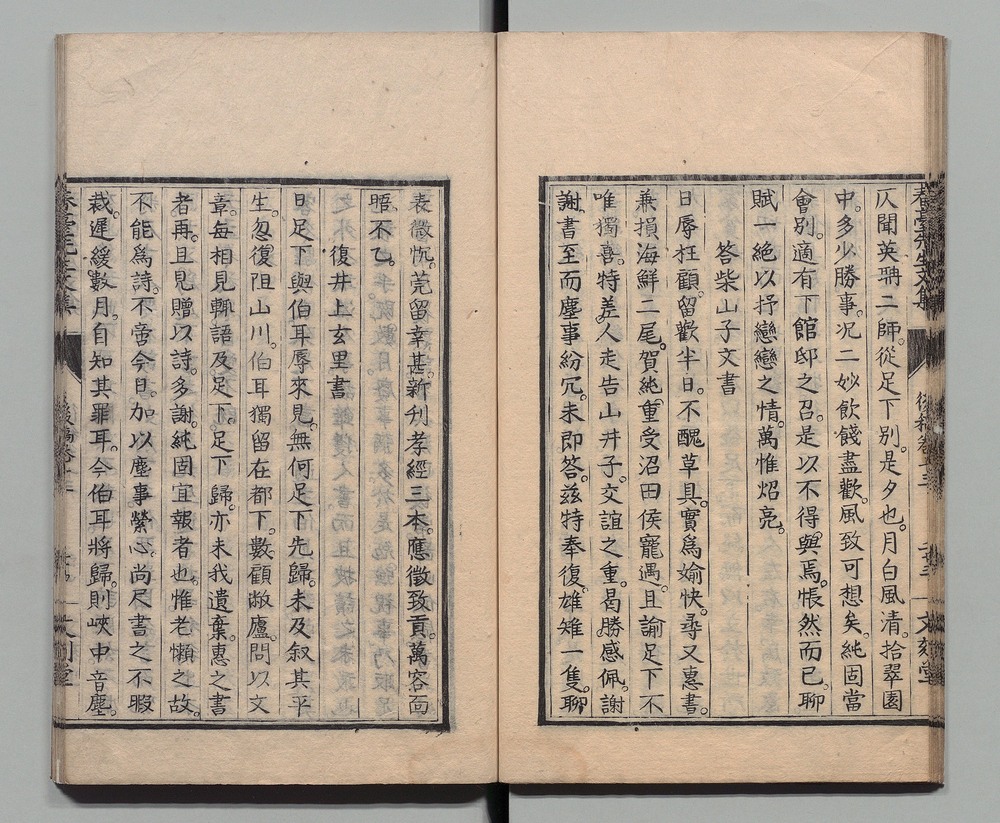 仄聞英冊二師。從足下別。是夕也。月白風清。拾翠園
中。多少勝事。况二妙飲餞盡歡。風致可想矣。純固當
會別。適有下館邸之召。是以不得與焉。悵然而已。聊
賦一絶以抒戀戀之情。萬惟炤亮。
答柴山子文書
日辱枉顧。留歡半日。不醜草具。實爲婾快。尋又惠書。
兼損海鮮二尾。賀純重受沼田侯寵遇。且諭足下不
唯獨喜。特差人走告山井子。交誼之重。曷勝感佩。謝
謝書至而塵事紛冗。未即答。茲特奉復。雄雉一隻。聊
表微忱。莞留幸甚。新刋孝經三本。應徵致貢。萬容面
晤。不乙。
復井上玄里書
日足下與伯耳辱來見。無何足下先歸。未及叙其平
生。忽復阻山川。伯耳獨留在都下。數顧敝廬。問以文
章。每相見輙語及足下。足下歸。亦未我遺棄。惠之書
者再。且見贈以詩。多謝。純固宜報者也。惟老懶之故。
不能爲詩。不啻今日。加以塵事縈心。尚尺書之不暇
裁。遲緩數月。自知其罪耳。今伯耳將歸。則峽中音塵。
春臺先生文集
文刻堂